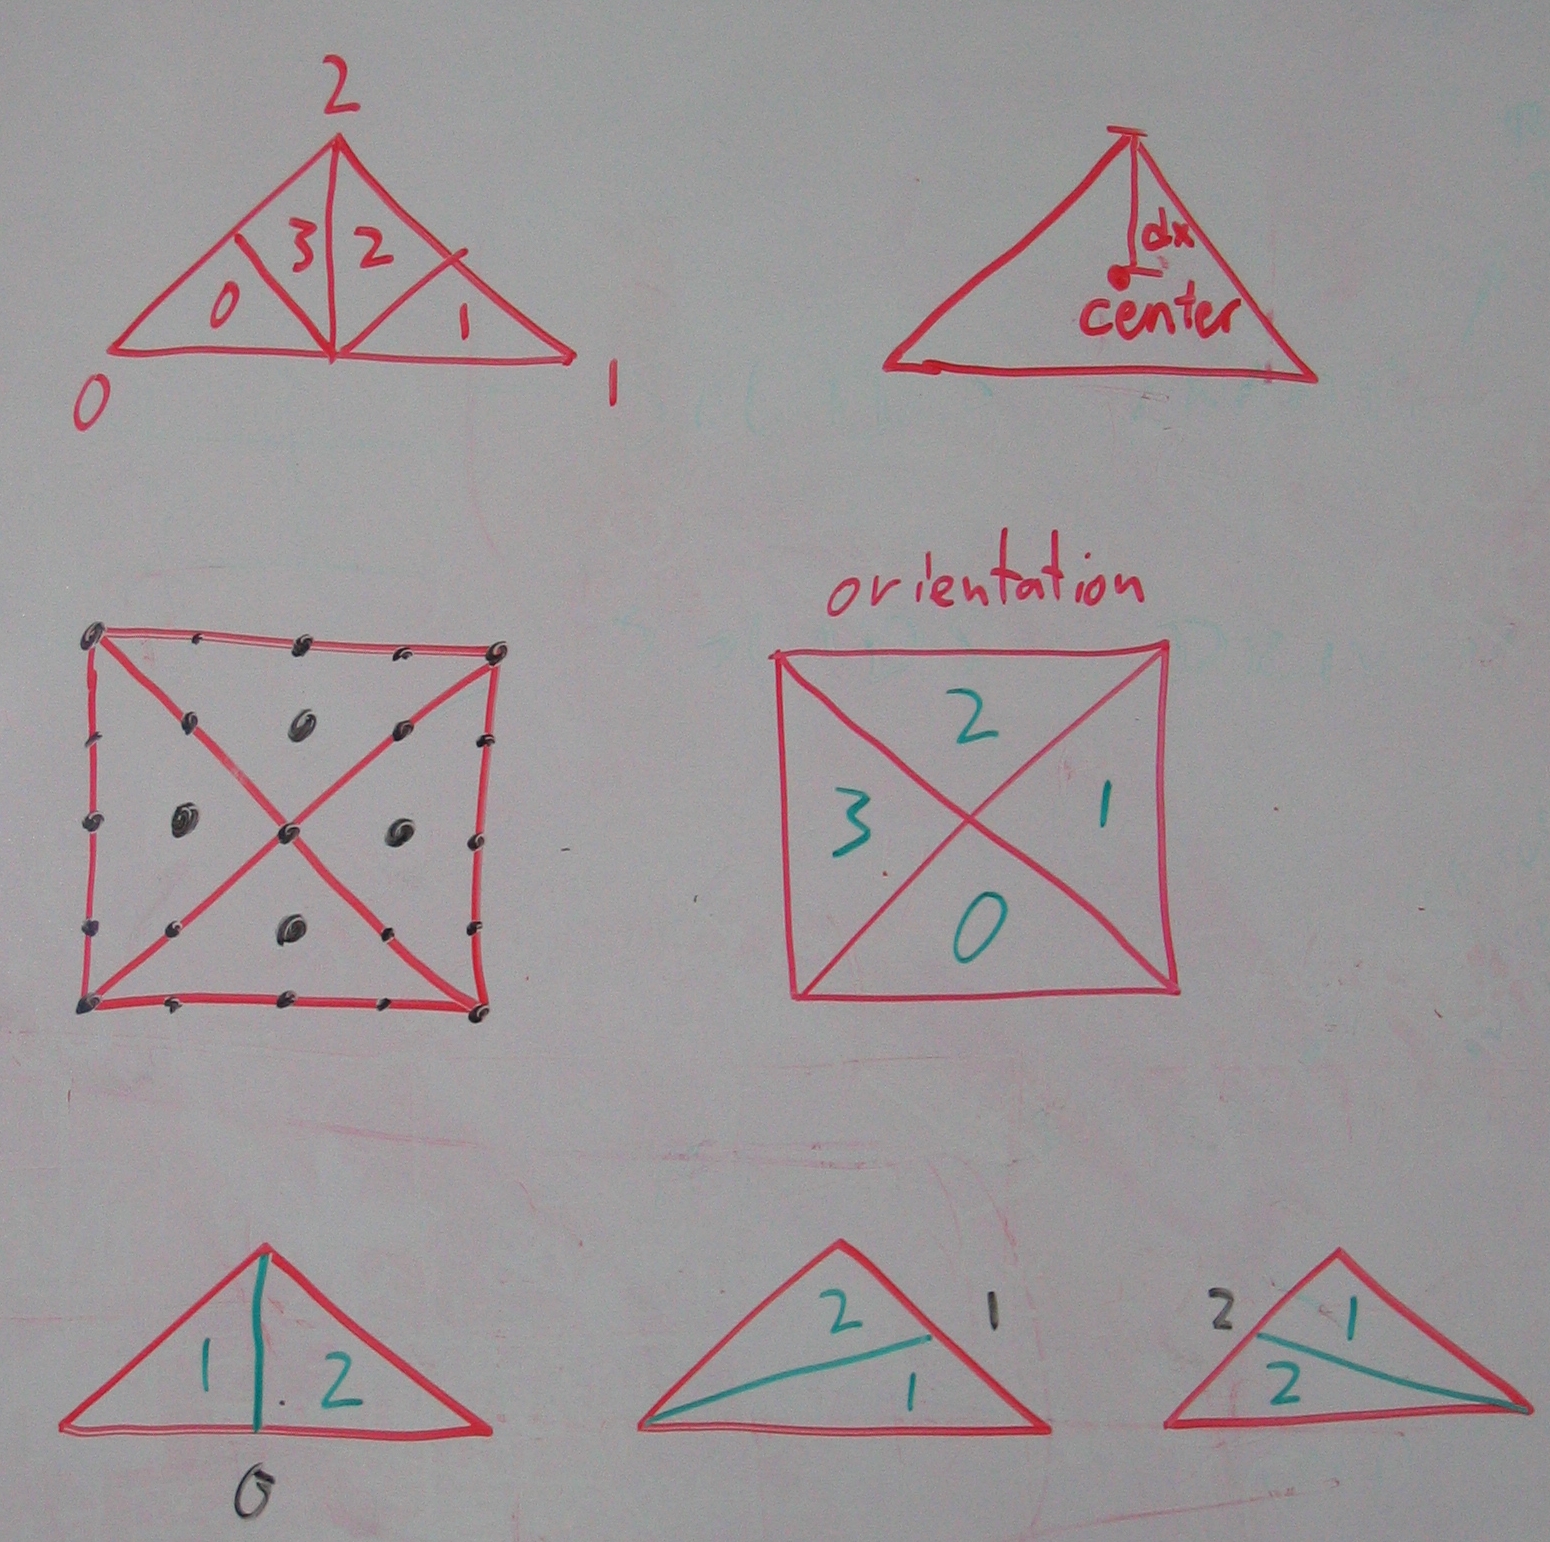 2
3 2
0 1
0 1
dx
center
orientation
2
3 1
0
1 2
0
2 1
1
2 1
2